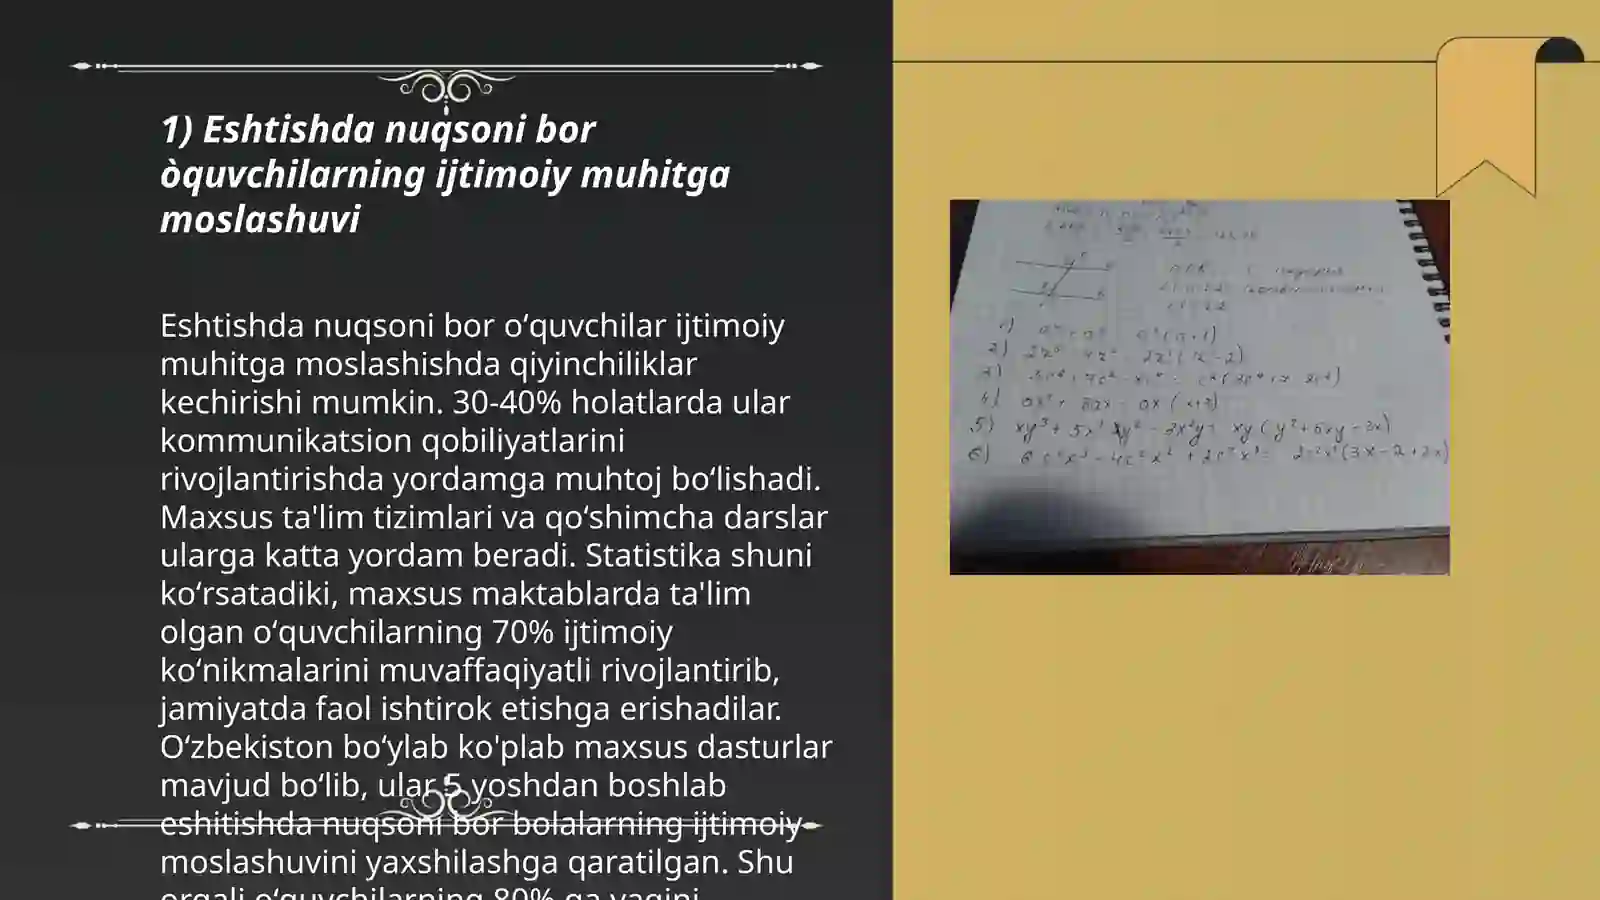 1) Eshtishda nuqsoni bor
òquvchilarning ijtimoiy muhitga
moslashuvi
Eshtishda nuqsoni bor o‘quvchilar ijtimoiy
muhitga moslashishda qiyinchiliklar
kechirishi mumkin. 30-40% holatlarda ular
kommunikatsion qobiliyatlarini
rivojlantirishda yordamga muhtoj bo‘lishadi.
Maxsus ta'lim tizimlari va qo‘shimcha darslar
ularga katta yordam beradi. Statistika shuni
ko‘rsatadiki, maxsus maktablarda ta'lim
olgan o‘quvchilarning 70% ijtimoiy
ko‘nikmalarini muvaffaqiyatli rivojlantirib,
jamiyatda faol ishtirok etishga erishadilar.
O‘zbekiston bo‘ylab ko'plab maxsus dasturlar
mavjud bo‘lib, ular 5 yoshdan boshlab
eshitishda nuqsoni bor bolalarning ijtimoiy
moslashuvini yaxshilashga qaratilgan. Shu
orqali o‘quvchilarning 80% ga yaqini
1)
2)
3)
4)
5) xy(y²+5xy-3x)
6)